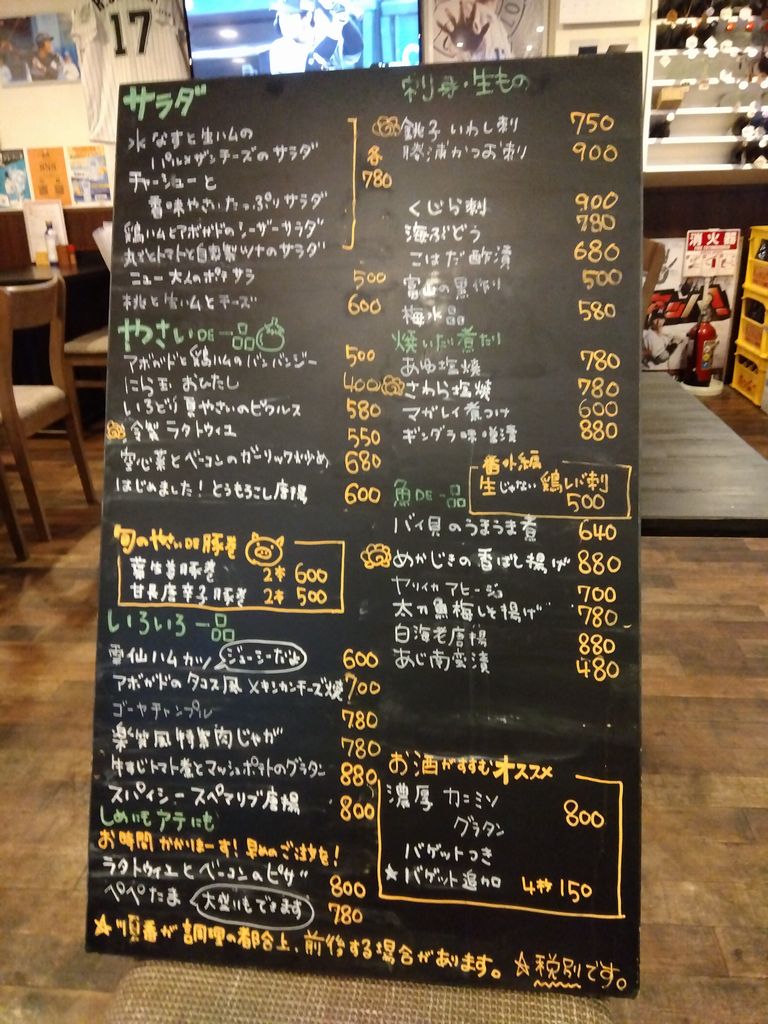 17
サラダ
水なすと生ハムの
パルメザンチーズのサラダ
チャーシューと
香味やさいたっぷりサラダ
鶏ハムとアボカドのシーザーサラダ
丸ごとトマトと自家製ツナのサラダ
各
780
ニュー大人のポテサラ 500
桃と生ハムとチーズ 600
やさいDE一品
アボカドと鶏ハムのバンバンジー 500
にら玉おひたし 400
いろどり夏やさいのピクルス 580
冷製ラタトゥイユ 550
空心菜とベーコンのガーリック炒め 680
はじめました!とうもろこし唐揚 600
旬のやさいDE豚巻
葉生姜豚巻 2本 600
甘長唐辛子豚巻 2本 500
いろいろ一品
雲仙ハムカツ ジューシーだよ 600
アボカドのタコス風メキシカンチーズ焼 700
ゴーヤチャンプル 780
楽笑風特製肉じゃが 780
牛すじトマト煮とマッシュポテトのグラタン 880
スパイシースペアリブ唐揚 800
しめにもアテにも
お時間かかりまーす!早めのご注文を!
ラタトゥイユとベーコンのピザ 800
ペペたま 大盛りもできます 780
刺身・生もの
銚子いわし刺 750
勝浦かつお刺 900
くじら刺 900
海ぶどう 780
こはだ酢漬 680
富山の黒作り 500
梅水晶 580
焼いたり煮たり
あゆ塩焼 780
さわら塩焼 780
マガレイ煮つけ 600
ギンダラ味噌漬 880
番外編
生じゃない鶏レバ刺
500
魚DE一品
バイ貝のうまうま煮 640
めかじきの香ばし揚げ 880
ヤリイカアヒージョ 700
太刀魚梅しそ揚げ 780
白海老唐揚 880
あじ南蛮漬 480
お酒がすすむオススメ
濃厚カニミソ
グラタン 800
バゲットつき
★バゲット追加 4枚 150
☆順番が調理の都合上、前後する場合があります。☆税別です。
消火器